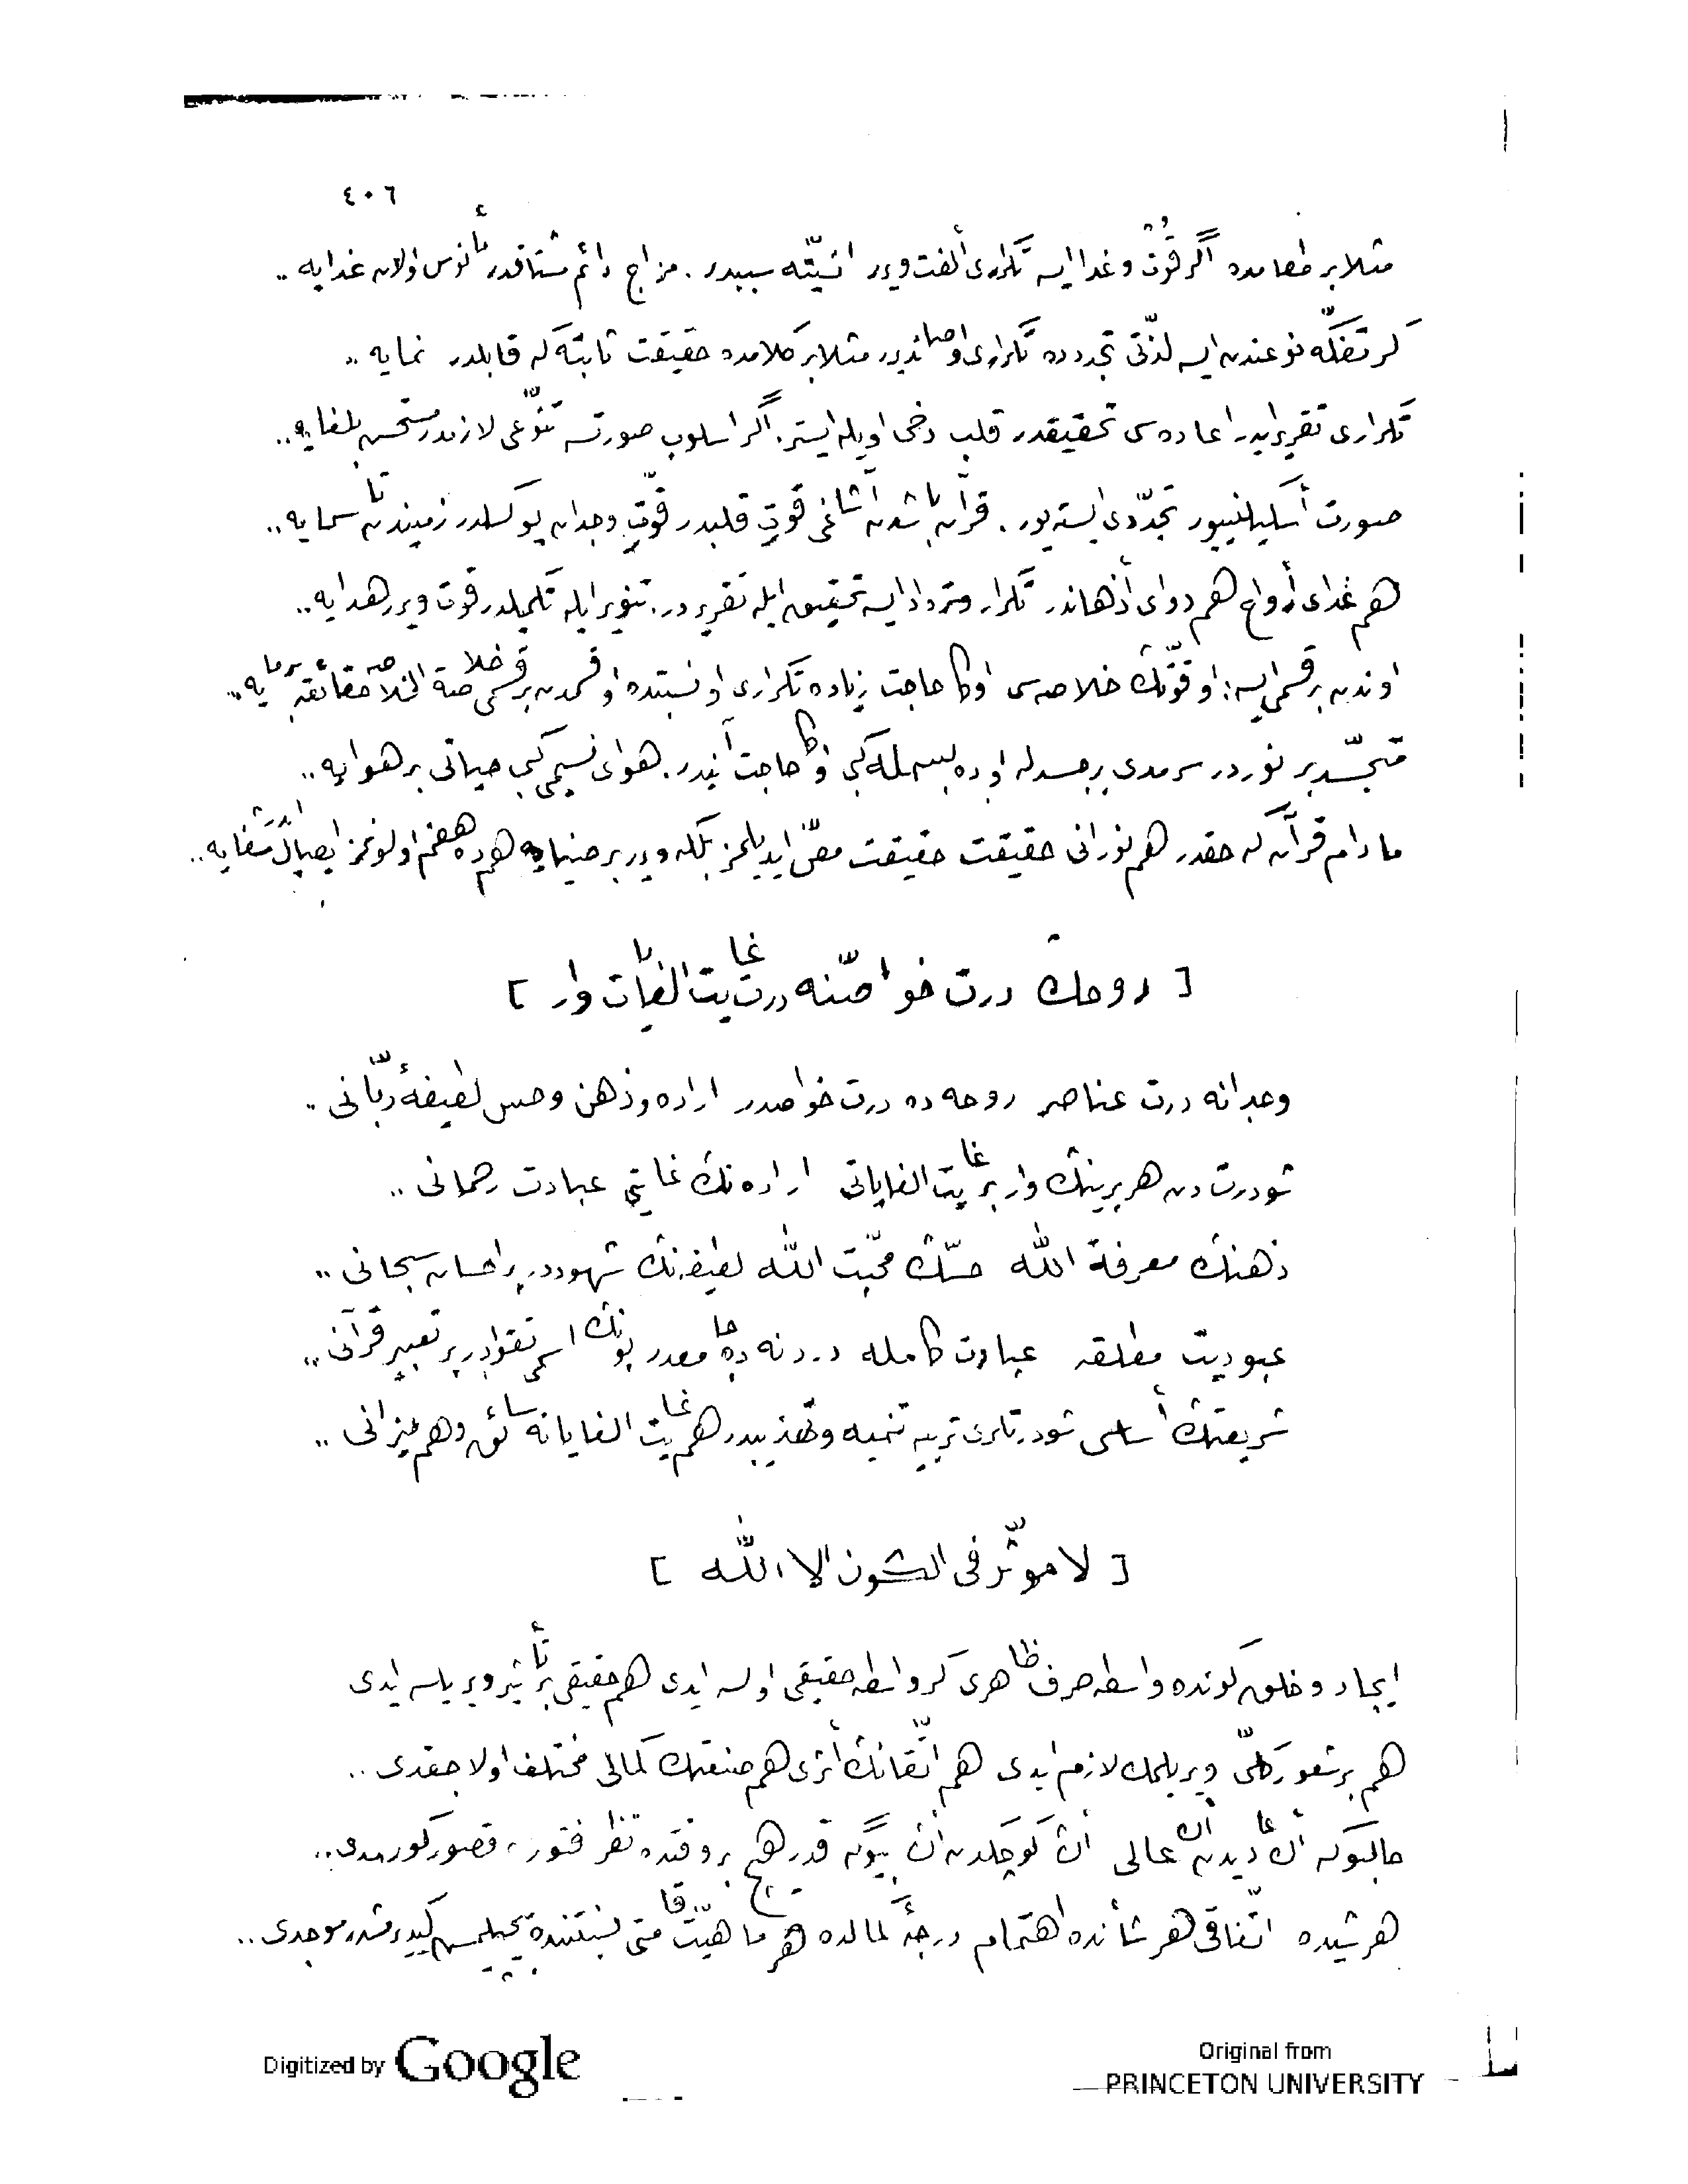 ٤٠٦
مثلا بر طعامده اگر قوت و غدا ايسه تكرارى ألفت ويرر انسيّته سببدر . مزاج دائم مشتاقدر مأنوس اولان غدايه ..
گر تفكّه نوعندن ايسه لذّتى تجددده تكرارى اوصاندرر مثلا بر كلامده حقيقت ثابته كه قابلدر نمايه ..
تكرارى تقرير ايدر اعاده سى تحقيقدر قلب دخى اويله ايستر . اگر اسلوب صورتسه تنوّعى لازمدر مستحسن بلغايه ..
صورت أسكيلنييور تجدّدى ايسته يور . قرآن باشدن آشاغى قوت قلبدر قوّت وجدان يوكسلدر زميندن تا سمايه ..
هم غداى أرواح هم دواى أذهاندر تكرار و ترداد ايسه تحقيق ايله تقريردر . تنوير ايله تكميلدر قوت ويرر هدايه ..
اوندن بر قسمى ايسه : او قوّتك خلاصه سى اوكا حاجت زياده تكرارى او نسبتده او قسمدن بر قسمى خلاصة الخلاصه حقائقه بر مايه ..
متجسّد بر نوردر سرمدى بر جسدله او ده بسمله كبى اوكا حاجت آنيدر . هواى نسيمى كبى حياتى بر هوايه ..
مادام قرآن كه حقدر هم نورانى حقيقت حقيقت مملّ ايديلمز بلكه ويرر بر ضيايه هم ده هضم اولونمز ايصال ايدر شفايه ..
[ روحك درت خواصّنه درت غايت الغايات وار ]
وجدانه درت عناصر روحه ده درت خواصدر اراده و ذهن و حس لطيفهٔ ربّانى ..
شو درت دن هر برينك وار بر غايت الغاياتى اراده نك غايتى عبادت رحمانى ..
ذهنك معرفة الله حسّك محبّت الله لطيفه نك شهوددر بر احسان سبحانى ..
عبوديت مطلقه عبادت كامله دردنه ده جامعدر بونك اسمى تقوادر بر تعبير قرآنى ..
شريعتك أساسى شو درتلرى تربيه تنميه و تهذيبدر هم غايت الغايانه سائق و هم ميزانى ..
[ لا مؤثّر فى الشئون الا الله ]
ايجاد و خلق كونده واسطه صرف ظاهرى گر واسطه حقيقى اولسه ايدى هم حقيقى بر تأثير ويريلسه ايدى
هم بر شعور كلّى ويريلمك لازم ايدى هم اتّقانك أثرى هم صنعتك كمالى مختلف اولاجقدى ..
حالبوكه أڭ عاديدن أڭ عالى أڭ كوچكدن أڭ بيوگه قدر هيچ بر وقتده تفاوت ، فتور ، قصور كورمدى ..
هر شيده اتّفاقى هر شأنده اهتمام درجهٔ كمالده هر ماهيّت قامتى نسبتنده بيچيلمسن گييدرمشدر موجدى ..
Digitized by Google
Original from
PRINCETON UNIVERSITY